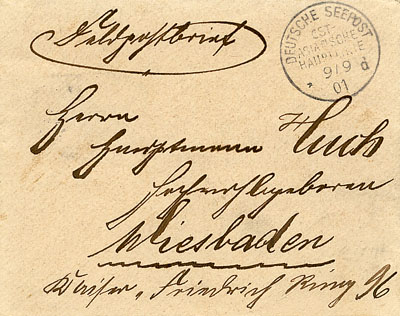 Feldpostbrief
DEUTSCHE SEEPOST
OST-
ASIATISCHE
HAUPTLINIE
d
9/9
01
Herrn
Hauptmann Huch
Hochwohlgeboren
Wiesbaden
Kaiser „ Friedrich Ring 96